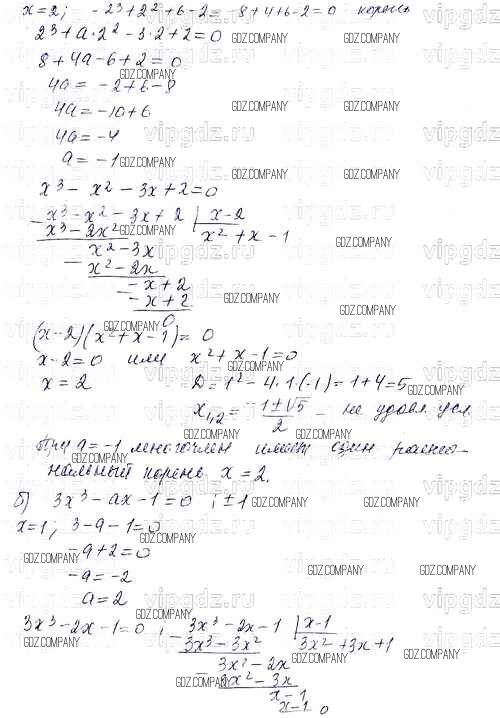 x=2; -2³+2²+6-2=-8+4+6-2=0 корень
2³+a·2²-3·2+2=0
8+4a-6+2=0
4a=-2+6-8
4a=-10+6
4a=-4
a=-1
x³-x²-3x+2=0
x³-x²-3x+2 | x-2
x³-2x² x²+x-1
x²-3x
x²-2x
-x+2
-x+2
0
(x-2)(x²+x-1)=0
x-2=0 или x²+x-1=0
x=2 D=1²-4·1·(-1)=1+4=5
x₁,₂=-1±√5/2 - не удовл. усл.
При a=-1 многочлен имеет один рацио-
нальный корень x=2.
б) 3x³-ax-1=0 ; ±1
x=1; 3-a-1=0
-a+2=0
-a=-2
a=2
3x³-2x-1=0 ; 3x³-2x-1 | x-1
3x³-3x² 3x²+3x+1
3x²-2x
3x²-3x
x-1
x-1
0